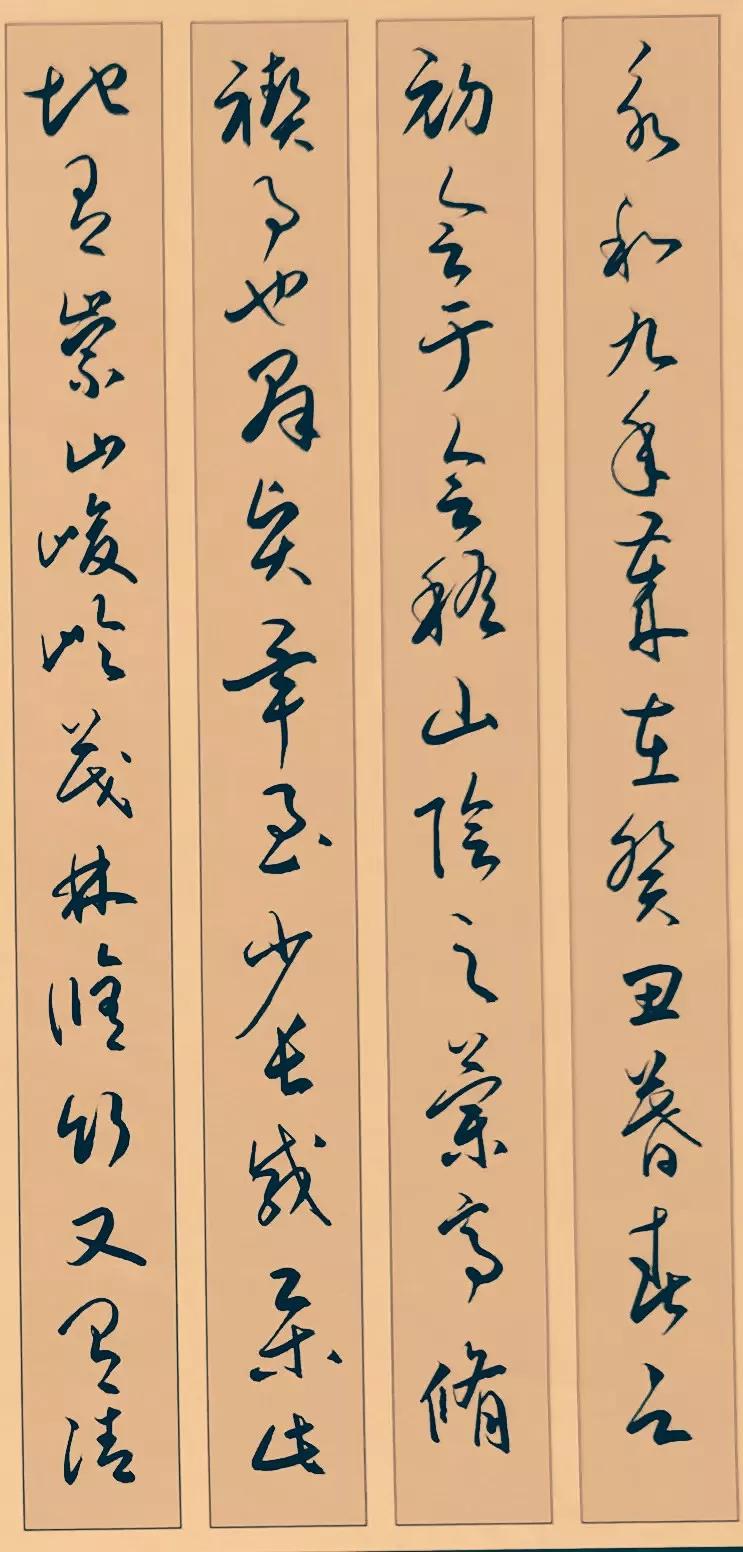 永和九年歲在癸丑暮春之
初會于會稽山陰之蘭亭脩
禊事也群賢畢至少長咸集此
地有崇山峻岭茂林脩竹又有清